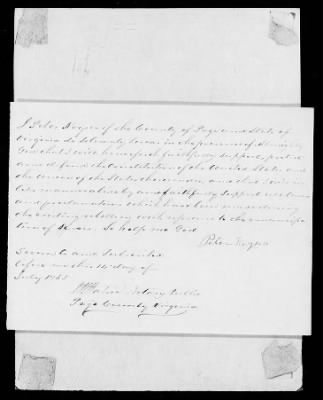 I Peter Koyner of the County of Page and State of
Virginia do Solemnly Swear in the presence of Almighty
God that I will henceforth faithfully support, protect
and defend the Constitution of the United States and
the Union of the States thereunder, and that I will in
like manner abide by and faithfully support all laws
and proclamations which have been made during
the existing rebellion with reference to the emancipa-
tion of slaves. So help me God
Peter
Sworn to and Subscribed
before me this 14 day of
July 1865
Notary Public
Page County Virginia